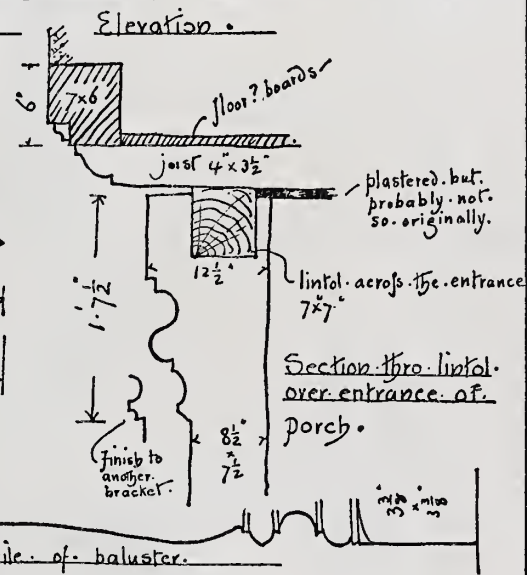 Elevation.
7x6
6"
floor? boards
joist 4" x 3½"
plastered. but.
probably. not.
so. originally.
12½"
lintol. across. the. entrance
7"x7."
1'.7½"
Section. thro. lintol.
over. entrance. of.
porch.
8½"
x
7½"
finish to
another.
bracket.
ile. of. baluster.